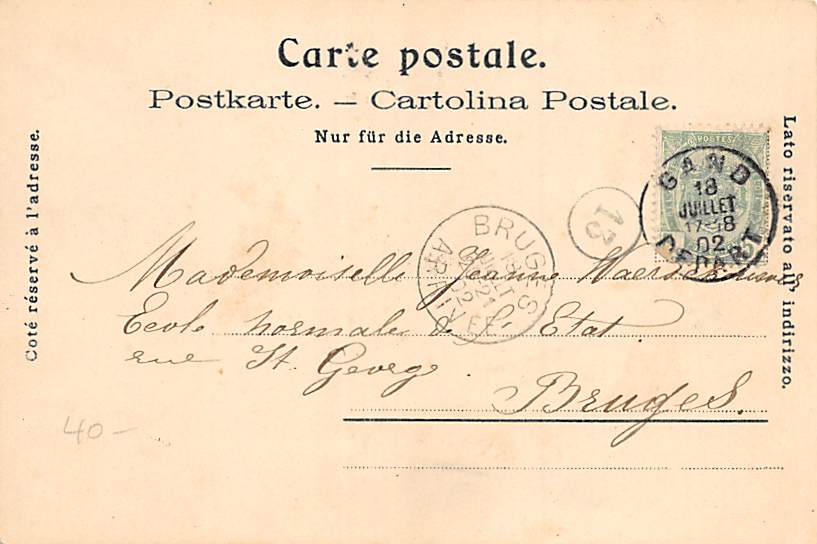 Carte postale.
Postkarte. — Cartolina Postale.
Nur für die Adresse.
Coté réservé à l'adresse.
Lato riservato all' indirizzo.
POSTES
GAND
18
JUILLET
17-18
02
DEPART
13
BRUGES
JUILLET
21
02
ARRIVEE
Mademoiselle Jeanne
Ecole normale de l'Etat.
rue St. George.
Bruges.
40-